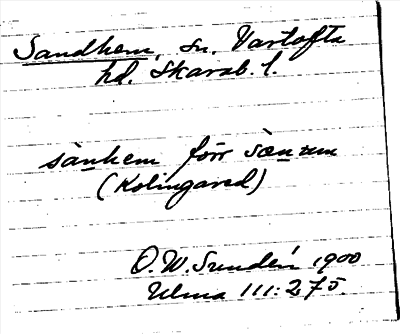 Sandhem, sn. Vartofta
hd. Skarab. l.
sànhem förr sænum
(Kölingared)
O. W. Sundén 1900
Ulma 111:275.